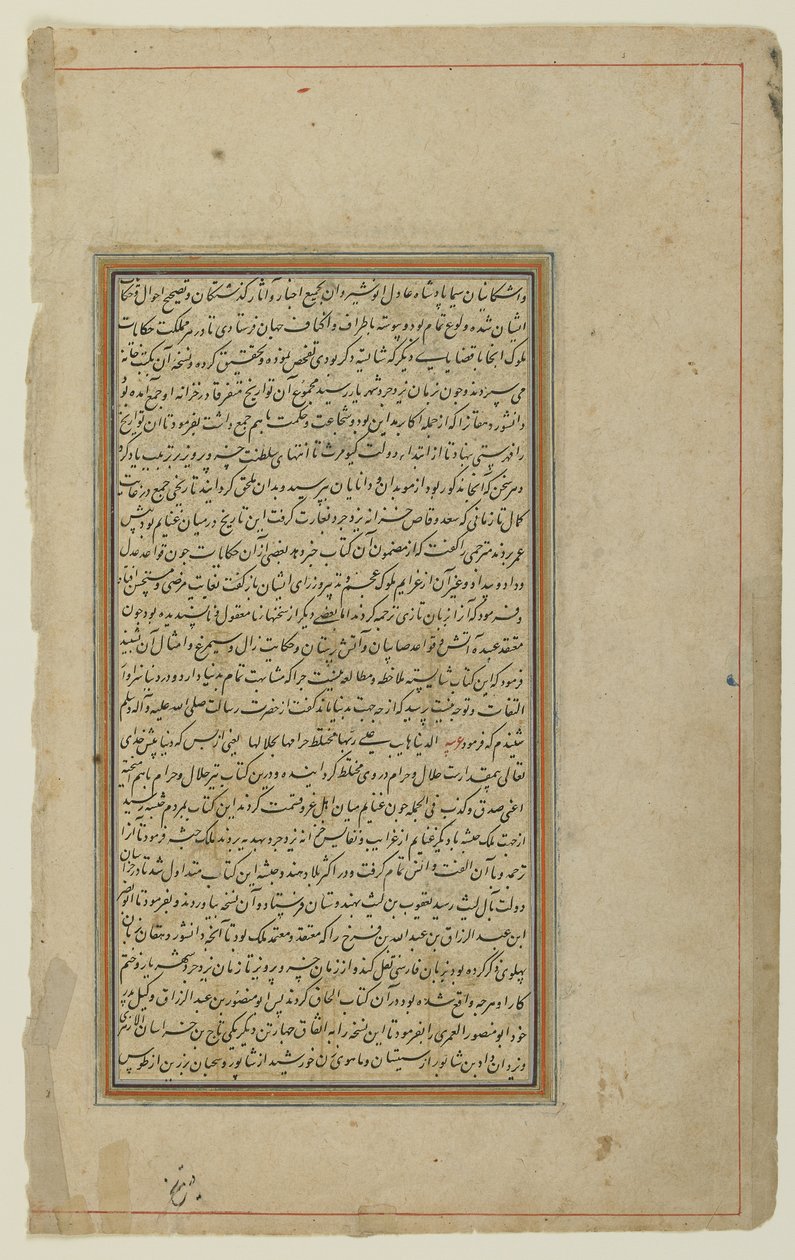 واشکانیان سیما پادشاه عادل انوشیروان بجمیع اخبار و آثار گذشتگان و تصحیح احوال و حکایات
ایشان شده ولوع تمام بود و پیوسته باطراف و اکناف جهان فرستادی تا در هر مملکت حکایات
ملوک آنجا با قضایایی دیگر که شایسته ذکر بودی تفحص نموده و تحقیق کرده و نسخه آن بکتب خانه
می سپردند و چون زمان یزدجرد شهریار رسید مجموع آن تواریخ متفرقا در خزانه او جمع آمده بود
دانشور دهقانرا که از جمله اکابر مداین بود و شجاعت و حکمت با هم جمع داشت بفرمود تا آن تواریخ
را فهرستی بنهاد تا از ابتداء دولت کیومرث تا انتهای سلطنت خسرو پرویز بر ترتیب یاد کرد
و هر سخن که آنجا مذکور بود از موبدان و دانایان بپرسید و بدان ملحق کردانید تاریخی جمع در غایت
کمال تا زمانی که سعد وقاص خزانه یزدجرد بغارت گرفت این تاریخ در میان غنایم بود پیش
عمر بردند مترجمی را گفت که از مضمون آن کتاب خبر دهد بعضی از آن حکایات چون قواعد عدل
و داد و بیداد و غیر آن از عزایم ملوک عجم و تدبیر وزرای ایشان باز گفت بغایت مرضی و مستحسن افتاد
و فرمود که آنرا بزبان تازی ترجمه کردند اما بعضی دیگر از سخنها نامعقول و ناپسندیده بود چون
معتقد عبده آتش و قواعد صابیان و آتش پرستان و حکایت زال و سیمرغ و امثال آن بشنید
فرمود که این کتاب شایسته ملاحظه و مطالعه نیست چرا که مشابهت تمام بدنیا دارد و در دنیا
التفات و توجه نیست پرسید که از چه جهت بدنیا ماند گفت از حضرت رسالت صلی الله علیه و آله وسلم
شنیدم که فرمود عربیه الدنیا هاب علی ربها مختلط حرامها بحلالها یعنی از بس که دنیا پیش خدای
تعالی بیمقدارست حلال و حرام در وی مختلط گردانیده و درین کتاب نیز حلال و حرام باهم آمیخته
اعنی صدق و کذب فی الجمله چون غنایم میان اهل عرب قسمت کردند این کتاب بمردم حبشه رسید
از جهت ملک حبشه با دیگر غنایم از غرایب و نفایس خزانه یزدجرد بهدیه بردند ملک حبشه فرمود تا آنرا
ترجمه و با آن الفت و انس تمام گرفت و در اکثر بلاد هند و حبشه این کتاب متداول شد تا در خراسان
دولت بآل لیث رسید یعقوب بن لیث بهندوستان فرستاد و آن نسخه بیاوردند و بفرمود تا ابو منصور
ابن عبد الرزاق بن عبد الله بن فرخ را که معتقد و معتمد ملک بود تا آنچه دانشور دهقان بزبان
پهلوی ذکر کرده بود بزبان فارسی نقل کند و از زمان خسرو پرویز تا زمان یزدجرد شهریار و ختم
کار او هرچه واقع شده بود در آن کتاب الحاق کردند پس ابو منصور بن عبد الرزاق وکیل پدر
خود ابو منصور المعمری را بفرمود تا این نسخه را به اتفاق چهار تن دیگر یکی تاج بن خراسان
و یزدان داد بن شاپور از سیستان و ماهوی بن خورشید از شاپور و سحبان برزین از طوس